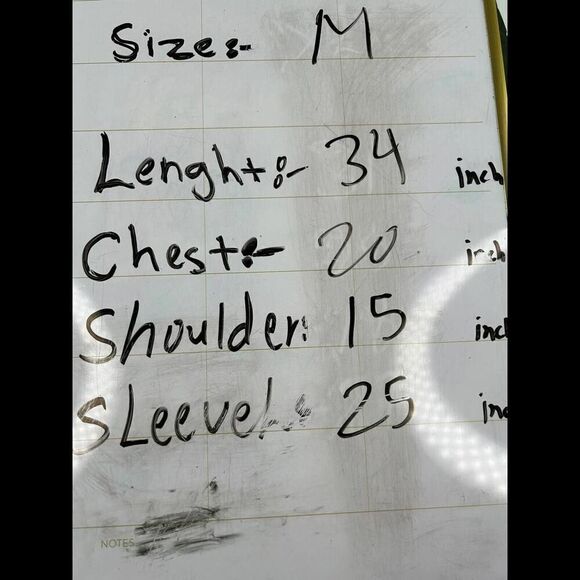 Size:- M
Lenght:- 34 inch
Chest:- 20 inch
Shoulder: 15 inc
SLeevel: 25 in
NOTES